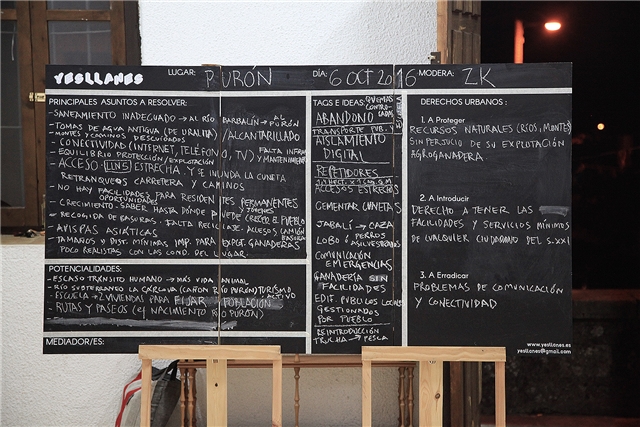 YESLLANES
LUGAR: PURÓN
DÍA: 6 OCT 2016
MODERA: ZK
PRINCIPALES ASUNTOS A RESOLVER:
- SANEAMIENTO INADECUADO → AL RÍO BARBALÍN → AL PURÓN
- TOMAS DE AGUA ANTIGUA (DE URALITA) / ALCANTARILLADO
MONTES Y CAMINOS DESCUIDADOS
- CONECTIVIDAD (INTERNET, TELÉFONO, TV) FALTA INFRA
- EQUILIBRIO PROTECCIÓN/EXPLOTACIÓN Y MANTENIMIEN
- ACCESO LLN5 ESTRECHA. Y SE INUNDA LA CUNETA
RETRANQUEOS CARRETERA Y CAMINOS
- NO HAY FACILIDADES PARA RESIDENTES PERMANENTES
OPORTUNIDADES Y JÓVENES
- CRECIMIENTO. SABER HASTA DÓNDE PUEDE CRECER EL PUEBLO
- RECOGIDA DE BASURAS. FALTA RECICLAJE. ACCESOS CAMIÓN
BASURA
AVISPAS ASIÁTICAS
TAMAÑOS Y DIST. MÍNIMAS IMP. PARA EXPOT. GANADERAS
POCO REALISTAS CON LAS COND. DEL LUGAR.
POTENCIALIDADES:
- ESCASO TRÁNSITO HUMANO → MÁS VIDA ANIMAL
- RÍO SUBTERRÁNEO LA CÁRCOVA (CAÑÓN RÍO PURÓN) TURISMO
ACTIVO
ESCUELA → 2 VIVIENDAS PARA FIJAR POBLACIÓN
- RUTAS Y PASEOS (ej NACIMIENTO RÍO PURÓN)
MEDIADOR/ES:
TAGS E IDEAS:
QUEMAS
CONTRO-
LADAS
ESCUELA
ABANDONO
TRANSPORTE PUB. Y
AISLAMIENTO
DIGITAL
REPETIDORES
ACCESOS ESTRECHOS
CEMENTAR CUNETAS
JABALÍ → CAZA
LOBO Ó PERROS
ASILVESTRADOS
COMUNICACIÓN
EMERGENCIAS
GANADERÍA SIN
FACILIDADES
EDIF. PUBLICOS LOCALES
GESTIONADOS
POR PUEBLO
REINTRODUCCIÓN
TRUCHA → PESCA
DERECHOS URBANOS:
1. A Proteger
RECURSOS NATURALES (RÍOS, MONTES)
SIN PERJUICIO DE SU EXPLOTACIÓN
AGROGANADERA.
2. A Introducir
DERECHO A TENER LAS
FACILIDADES Y SERVICIOS MÍNIMOS
DE CUALQUIER CIUDADANO DEL S.XXI
3. A Erradicar
PROBLEMAS DE COMUNICACIÓN
Y CONECTIVIDAD
www.yesllanes.es
yesllanes@gmail.com